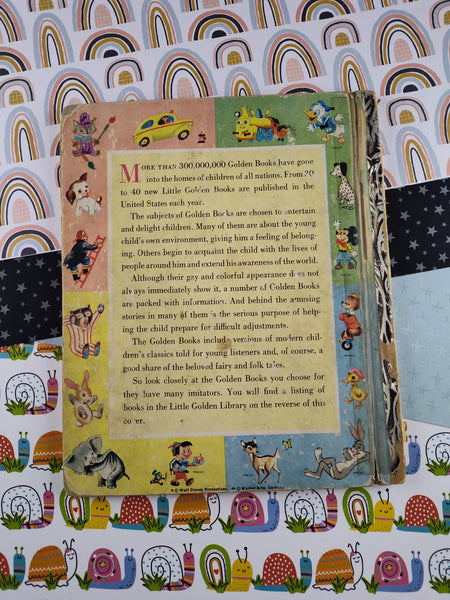 MORE THAN 300,000,000 Golden Books have gone
into the homes of children of all nations. From 30
to 40 new Little Golden Books are published in the
United States each year.
The subjects of Golden Books are chosen to entertain
and delight children. Many of them are about the young
child's own environment, giving him a feeling of belong-
ing. Others begin to acquaint the child with the lives of
people around him and extend his awareness of the world.
Although their gay and colorful appearance does not
always immediately show it, a number of Golden Books
are packed with information. And behind the amusing
stories in many of them is the serious purpose of help-
ing the child prepare for difficult adjustments.
The Golden Books include versions of modern chil-
dren's classics told for young listeners and, of course, a
good share of the beloved fairy and folk tales.
So look closely at the Golden Books you choose for
they have many imitators. You will find a listing of
books in the Little Golden Library on the reverse of this
cover.
© Walt Disney Productions
© Warner Bros. Cartoons